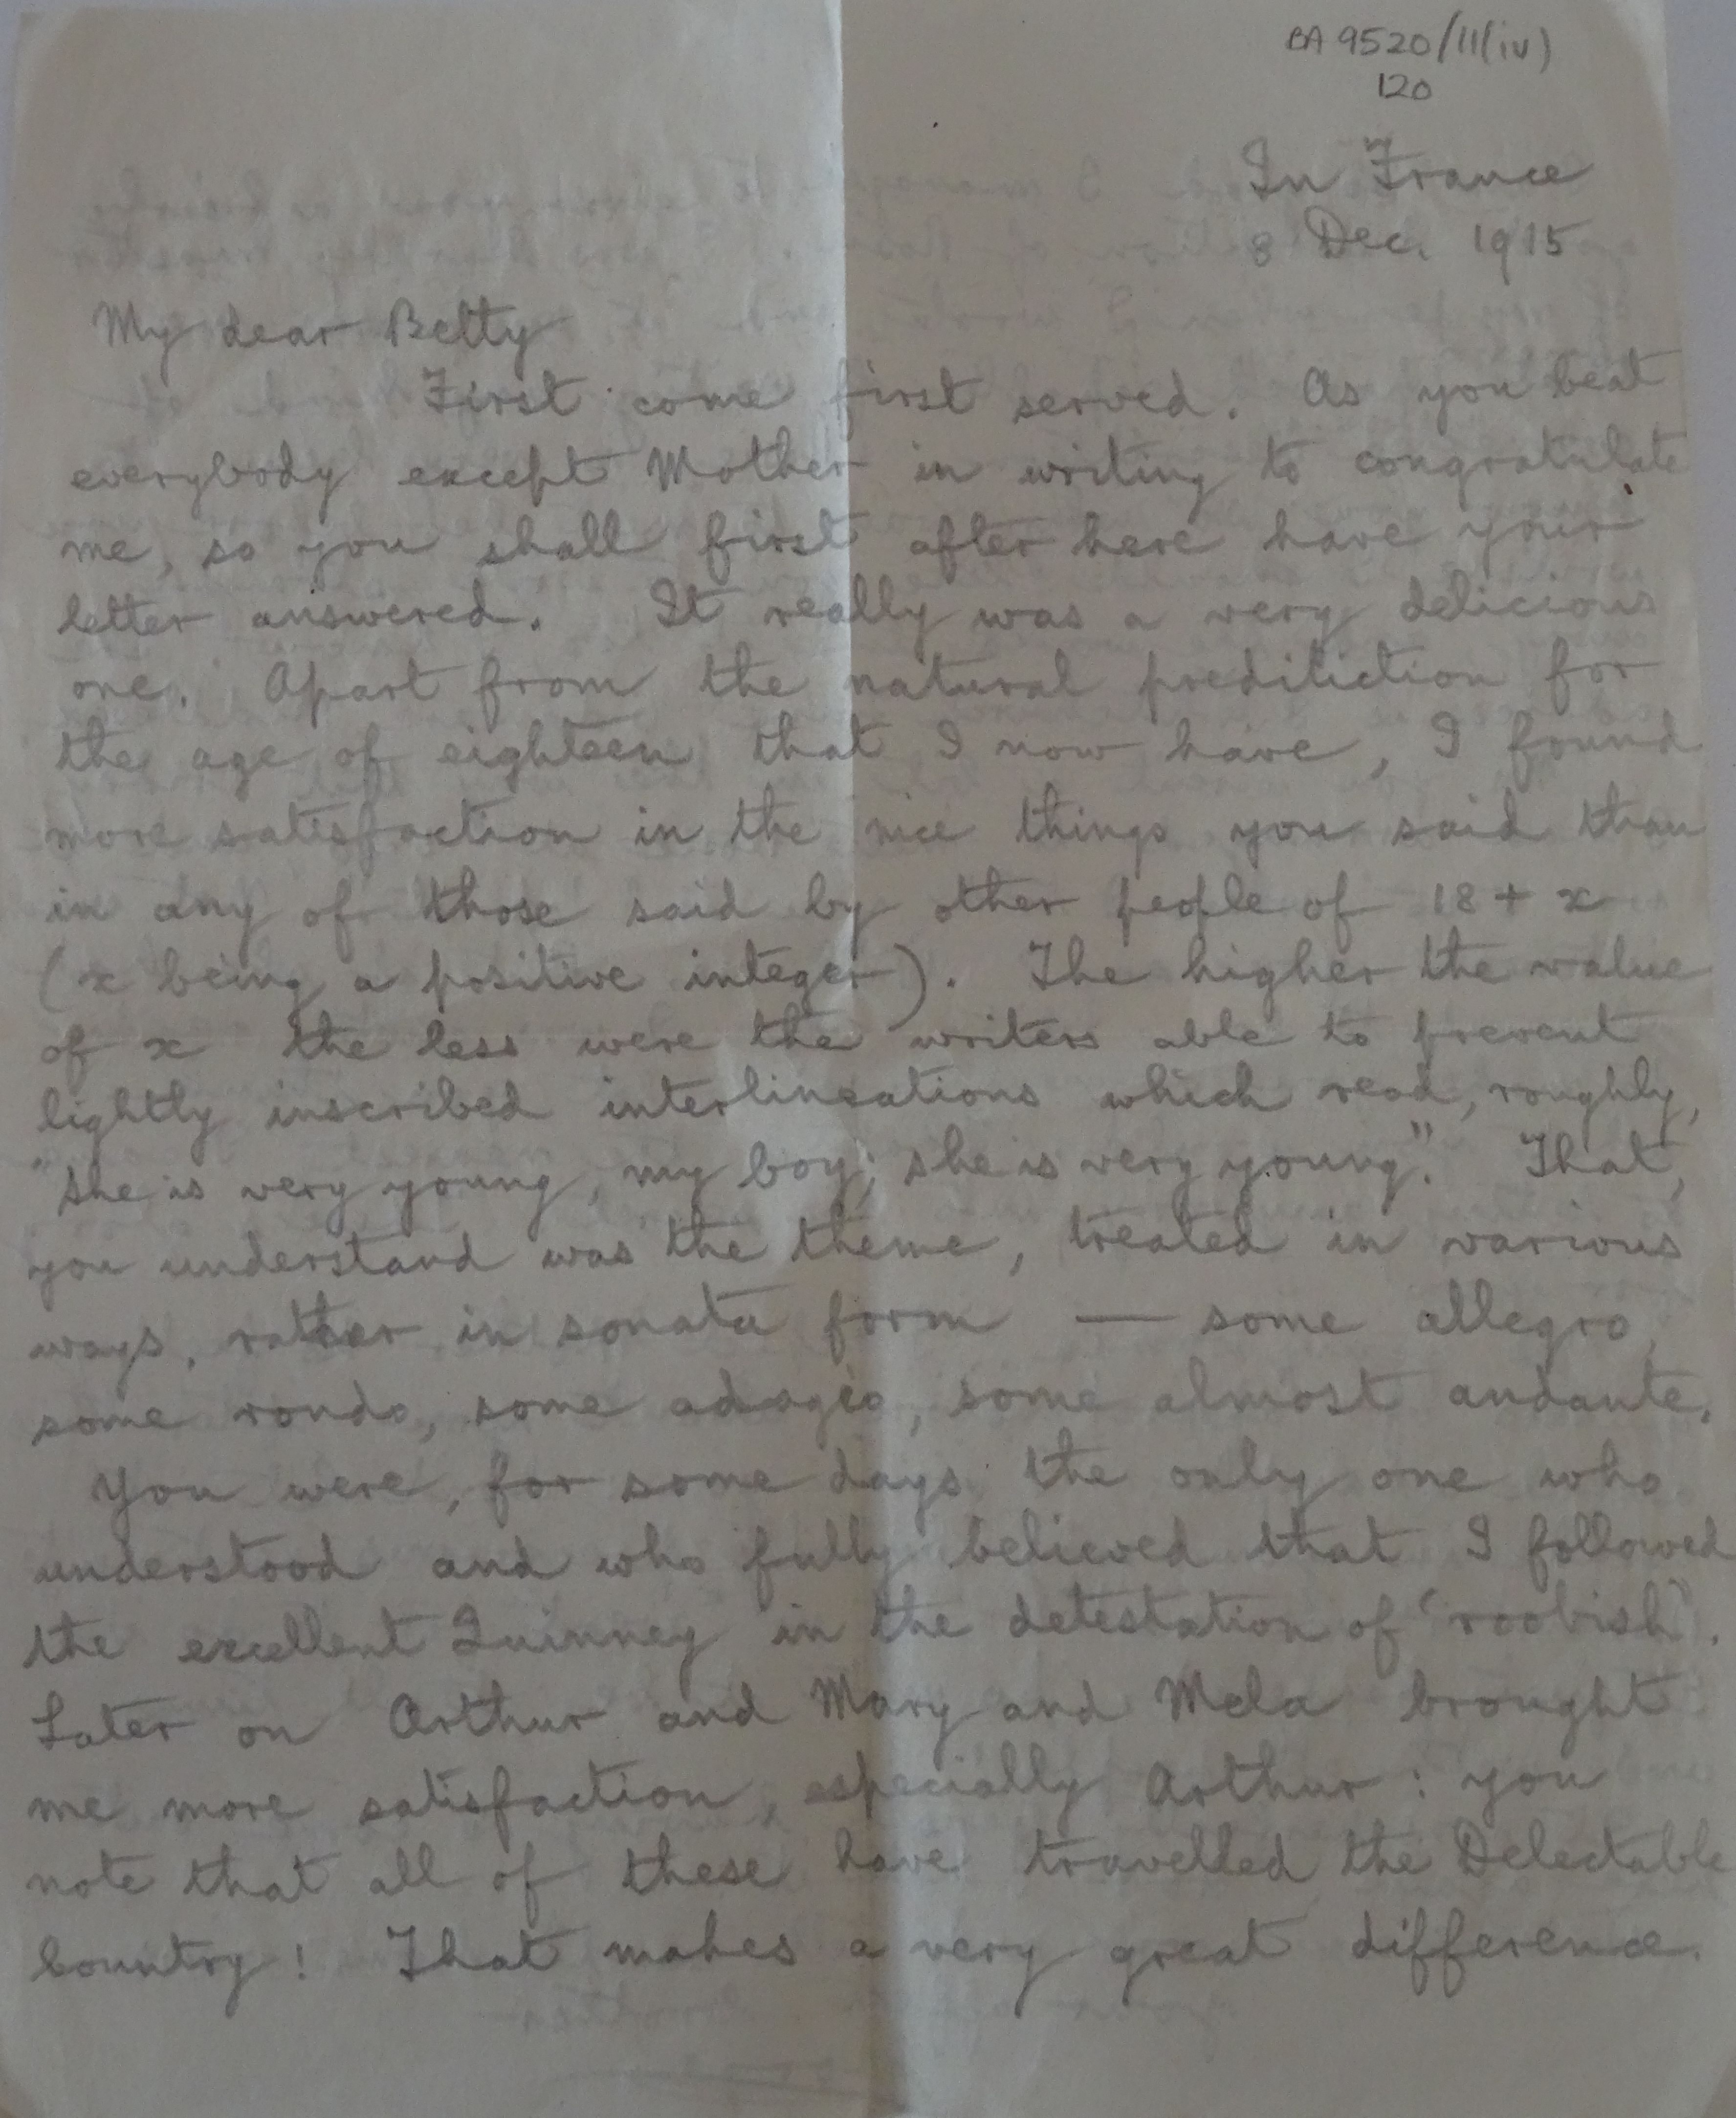 BA 9520/11(iv)
120
In France
8 Dec. 1915
My dear Betty
First come first served. As you beat
everybody except Mother in writing to congratulate
me, so you shall first after here have your
letter answered. It really was a very delicious
one. Apart from the natural prediliction for
the age of eighteen that I now have, I found
more satisfaction in the nice things you said than
in any of those said by other people of 18 + x
(x being a positive integer). The higher the value
of x the less were the writers able to prevent
lightly inscribed interlineations which read, roughly,
"she is very young, my boy; she is very young". That,
you understand was the theme, treated in various
ways, rather in sonata form — some allegro,
some rondo, some adagio, some almost andante.
You were, for some days the only one who
understood and who fully believed that I followed
the excellent Quinney in the detestation of 'roobish'.
Later on Arthur and Mary and Mela brought
me more satisfaction, especially Arthur : you
note that all of these have travelled the Delectable
Country! That makes a very great difference.